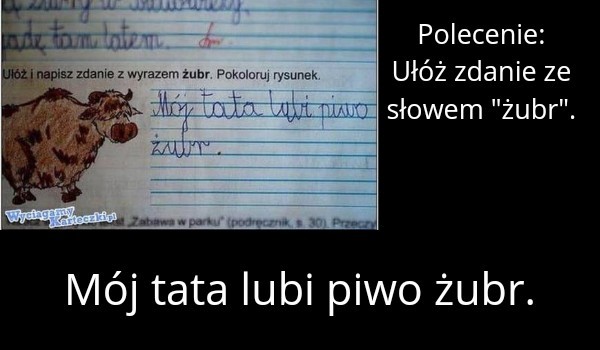 w
jadę tam latem.
Ułóż i napisz zdanie z wyrazem żubr. Pokoloruj rysunek.
Mój tata lubi piwo
żubr.
Wyciągamy
Karteczki.pl
„Zabawa w parku" (podręcznik, s. 30). Przeczy
Polecenie:
Ułóż zdanie ze
słowem "żubr".
Mój tata lubi piwo żubr.